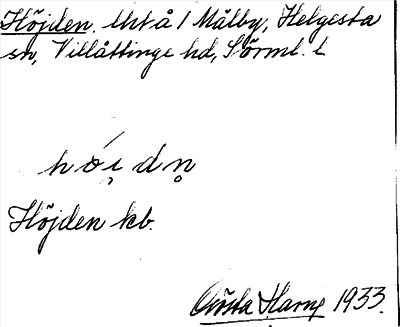 Höjden. Utst å 1 Målby, Helgesta
sn, Villåttinge hd, Sörml. l
hǿi̯ dn̥
Höjden kb.
Gösta Harne 1933.